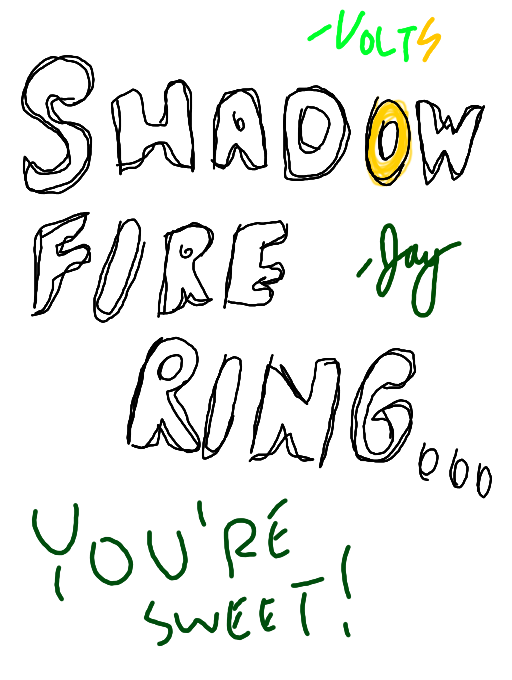 -VOLTS
SHADOW
FIRE
-Jay
RING...
YOU'RE
SWEET!